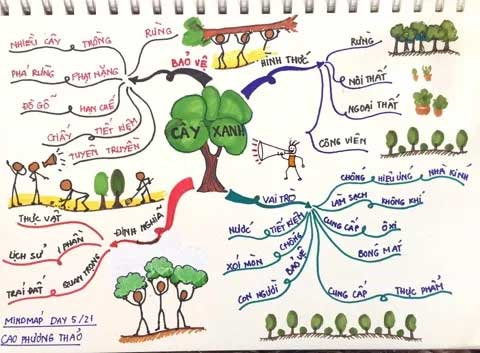 CÂY XANH
BẢO VỆ
RỪNG
TRỒNG
NHIỀU CÂY
PHẠT NẶNG
PHÁ RỪNG
HẠN CHẾ
ĐỒ GỖ
TIẾT KIỆM
GIẤY
TUYÊN TRUYỀN
HÌNH THỨC
RỪNG
NỘI THẤT
NGOẠI THẤT
CÔNG VIÊN
VAI TRÒ
CHỐNG HIỆU ỨNG NHÀ KÍNH
LÀM SẠCH KHÔNG KHÍ
CUNG CẤP ÔXI
BÓNG MÁT
CUNG CẤP THỰC PHẨM
NƯỚC TIẾT KIỆM
XÓI MÒN CHỐNG
CON NGƯỜI BẢO VỆ
ĐỊNH NGHĨA
THỰC VẬT
LỊCH SỬ 1 PHẦN
TRÁI ĐẤT QUAN TRỌNG
MINDMAP DAY 5/21
CAO PHƯƠNG THẢO